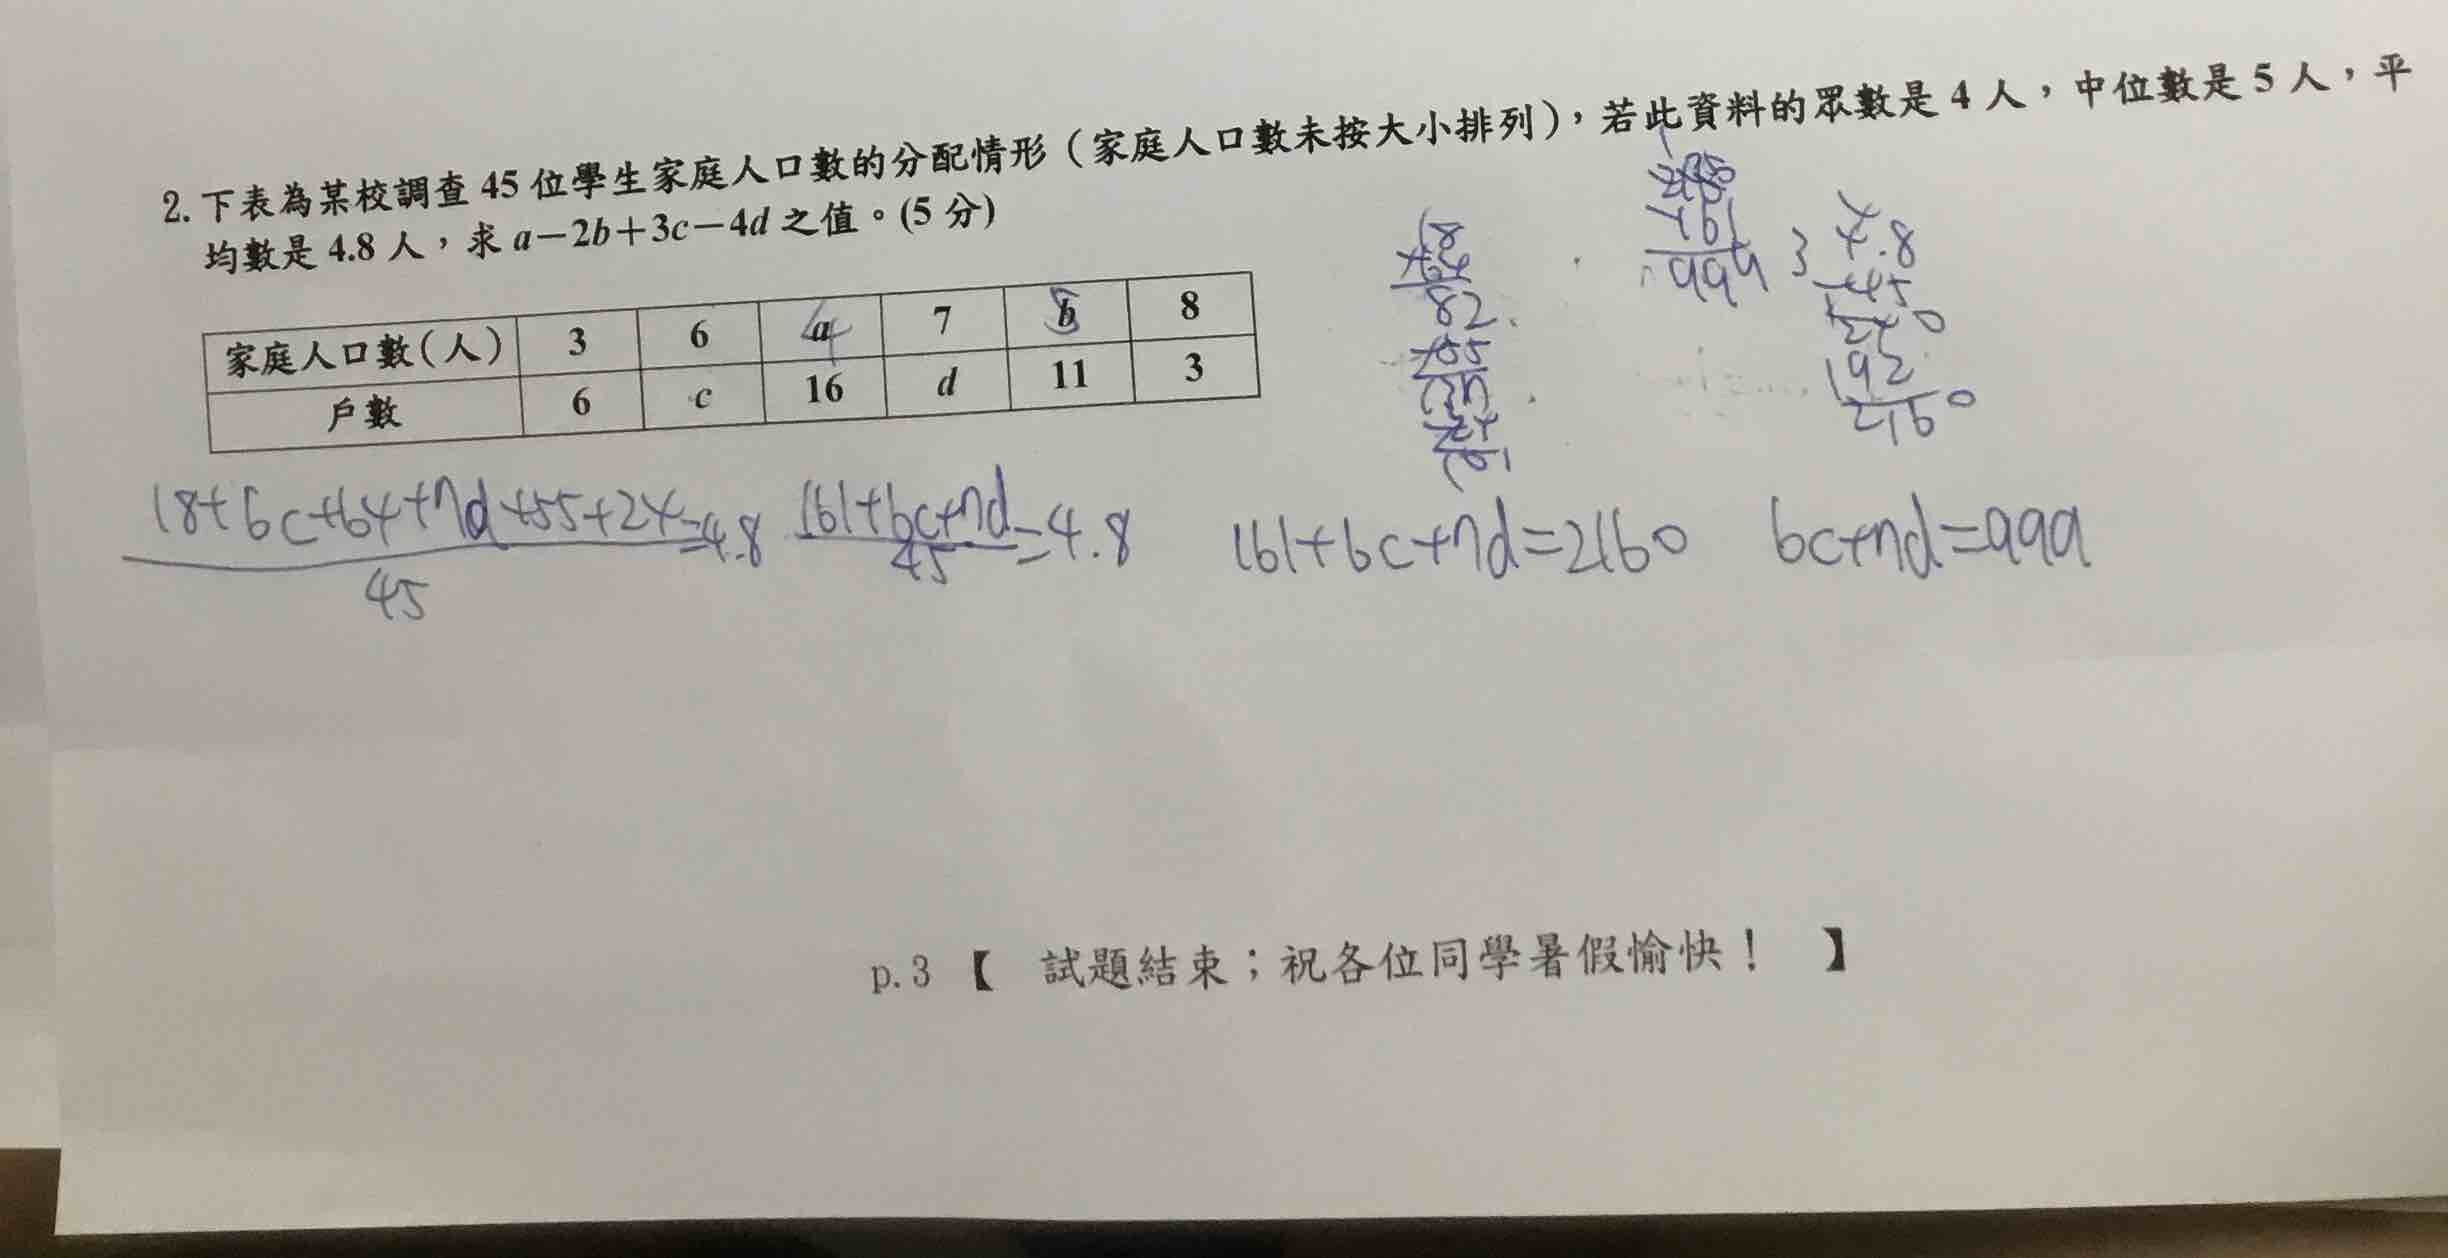 2. 下表為某校調查 45 位學生家庭人口數的分配情形（家庭人口數未按大小排列），若此資料的眾數是 4 人，中位數是 5 人，平
均數是 4.8 人，求 a－2b＋3c－4d 之值。(5 分)
家庭人口數(人) 3 6 a 4 7 b 5 8
戶數 6 c 16 d 11 3
18
82
+55
137
+24
161
2160
-161
999
4.8
45
240
192
2160
18+6c+64+7d+55+24/45=4.8 161+6c+7d/45=4.8 161+6c+7d=2160 6c+7d=999
p.3 【 試題結束；祝各位同學暑假愉快！ 】